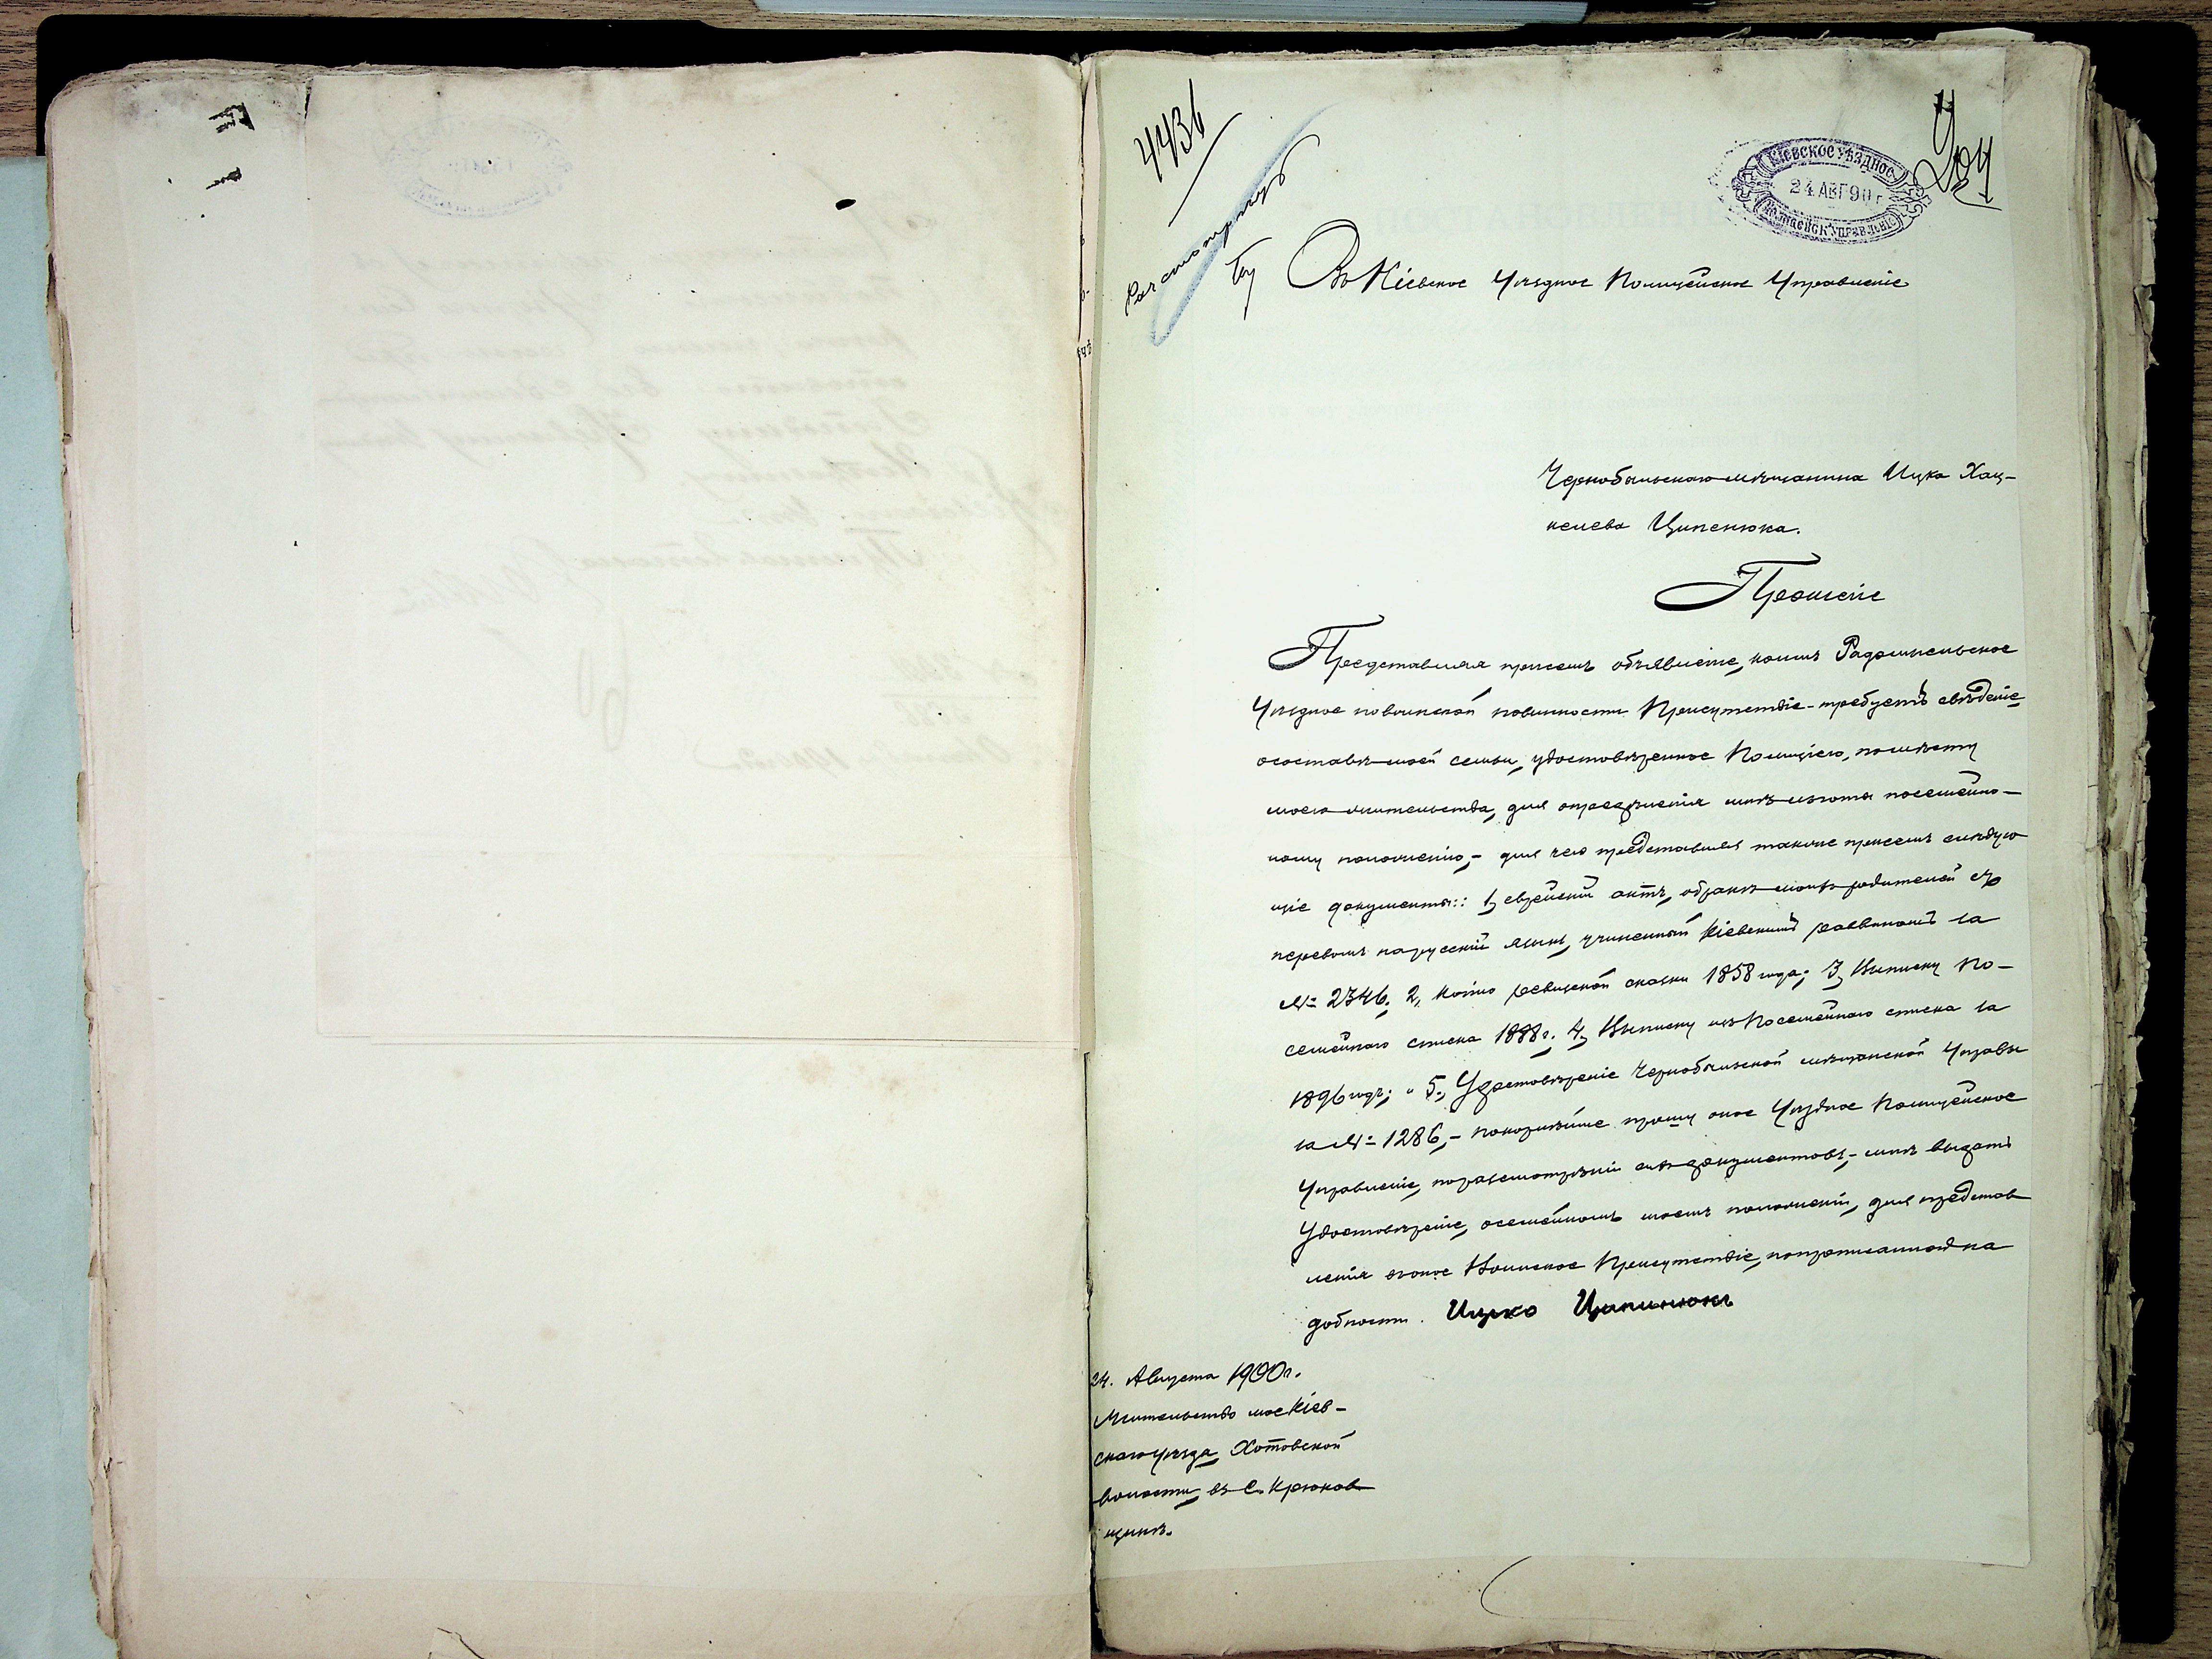 4436
204
КІЕВСКОЕ УѢЗДНОЕ
24 АВГ 90 г
ПОЛИЦЕЙСК УПРАВЛЕНІЕ
Въ Кіевское Уѣздное Полицейское Управленіе
Чернобыльскаго мѣщанина Ицка Хац-
келева Ципенюка.
Прошеніе
Представляя присемъ объявленіе, коимъ Радомысльское
Уѣздное повоинской повинности Присутствіе - требуетъ свѣдѣніе
осоставѣ моей семьи, удостовѣренное Полиціею, помѣсту
моего жительства, для опредѣленія мнѣ льготы посемейно-
ному положенію, - для чего представляя также присемъ слѣдую
щіе документы: 1, еврейскій актъ, обракѣ моихъ родителей съ
переводъ нарусскій языкъ, учиненный Кіевскимъ раввиномъ за
№ 2346. 2, копію ревизской сказки 1858 года; 3, Выписку По-
семейнаго списка 1888 г. 4, Выписку изъ Посемейнаго списка за
1896 годъ; и 5., Удостовѣреніе Чернобыльской мѣщанской Управы
за № 1286, - покорнѣйше прошу оное Уѣздное Полицейское
Управленіе, поразсмотрѣніи сихъ документовъ, - мнѣ выдать
Удостовѣреніе, осемейномъ моемъ положеніи, для представ
ленія воное Воинское Присутствіе, попрописанной на
добности. Ицко Ципинюкъ
24. Августа 1900 г.
Жительство мое Кіев-
скаго уѣзда, Хотовской
волости, въ с. Крюков
щинѣ.